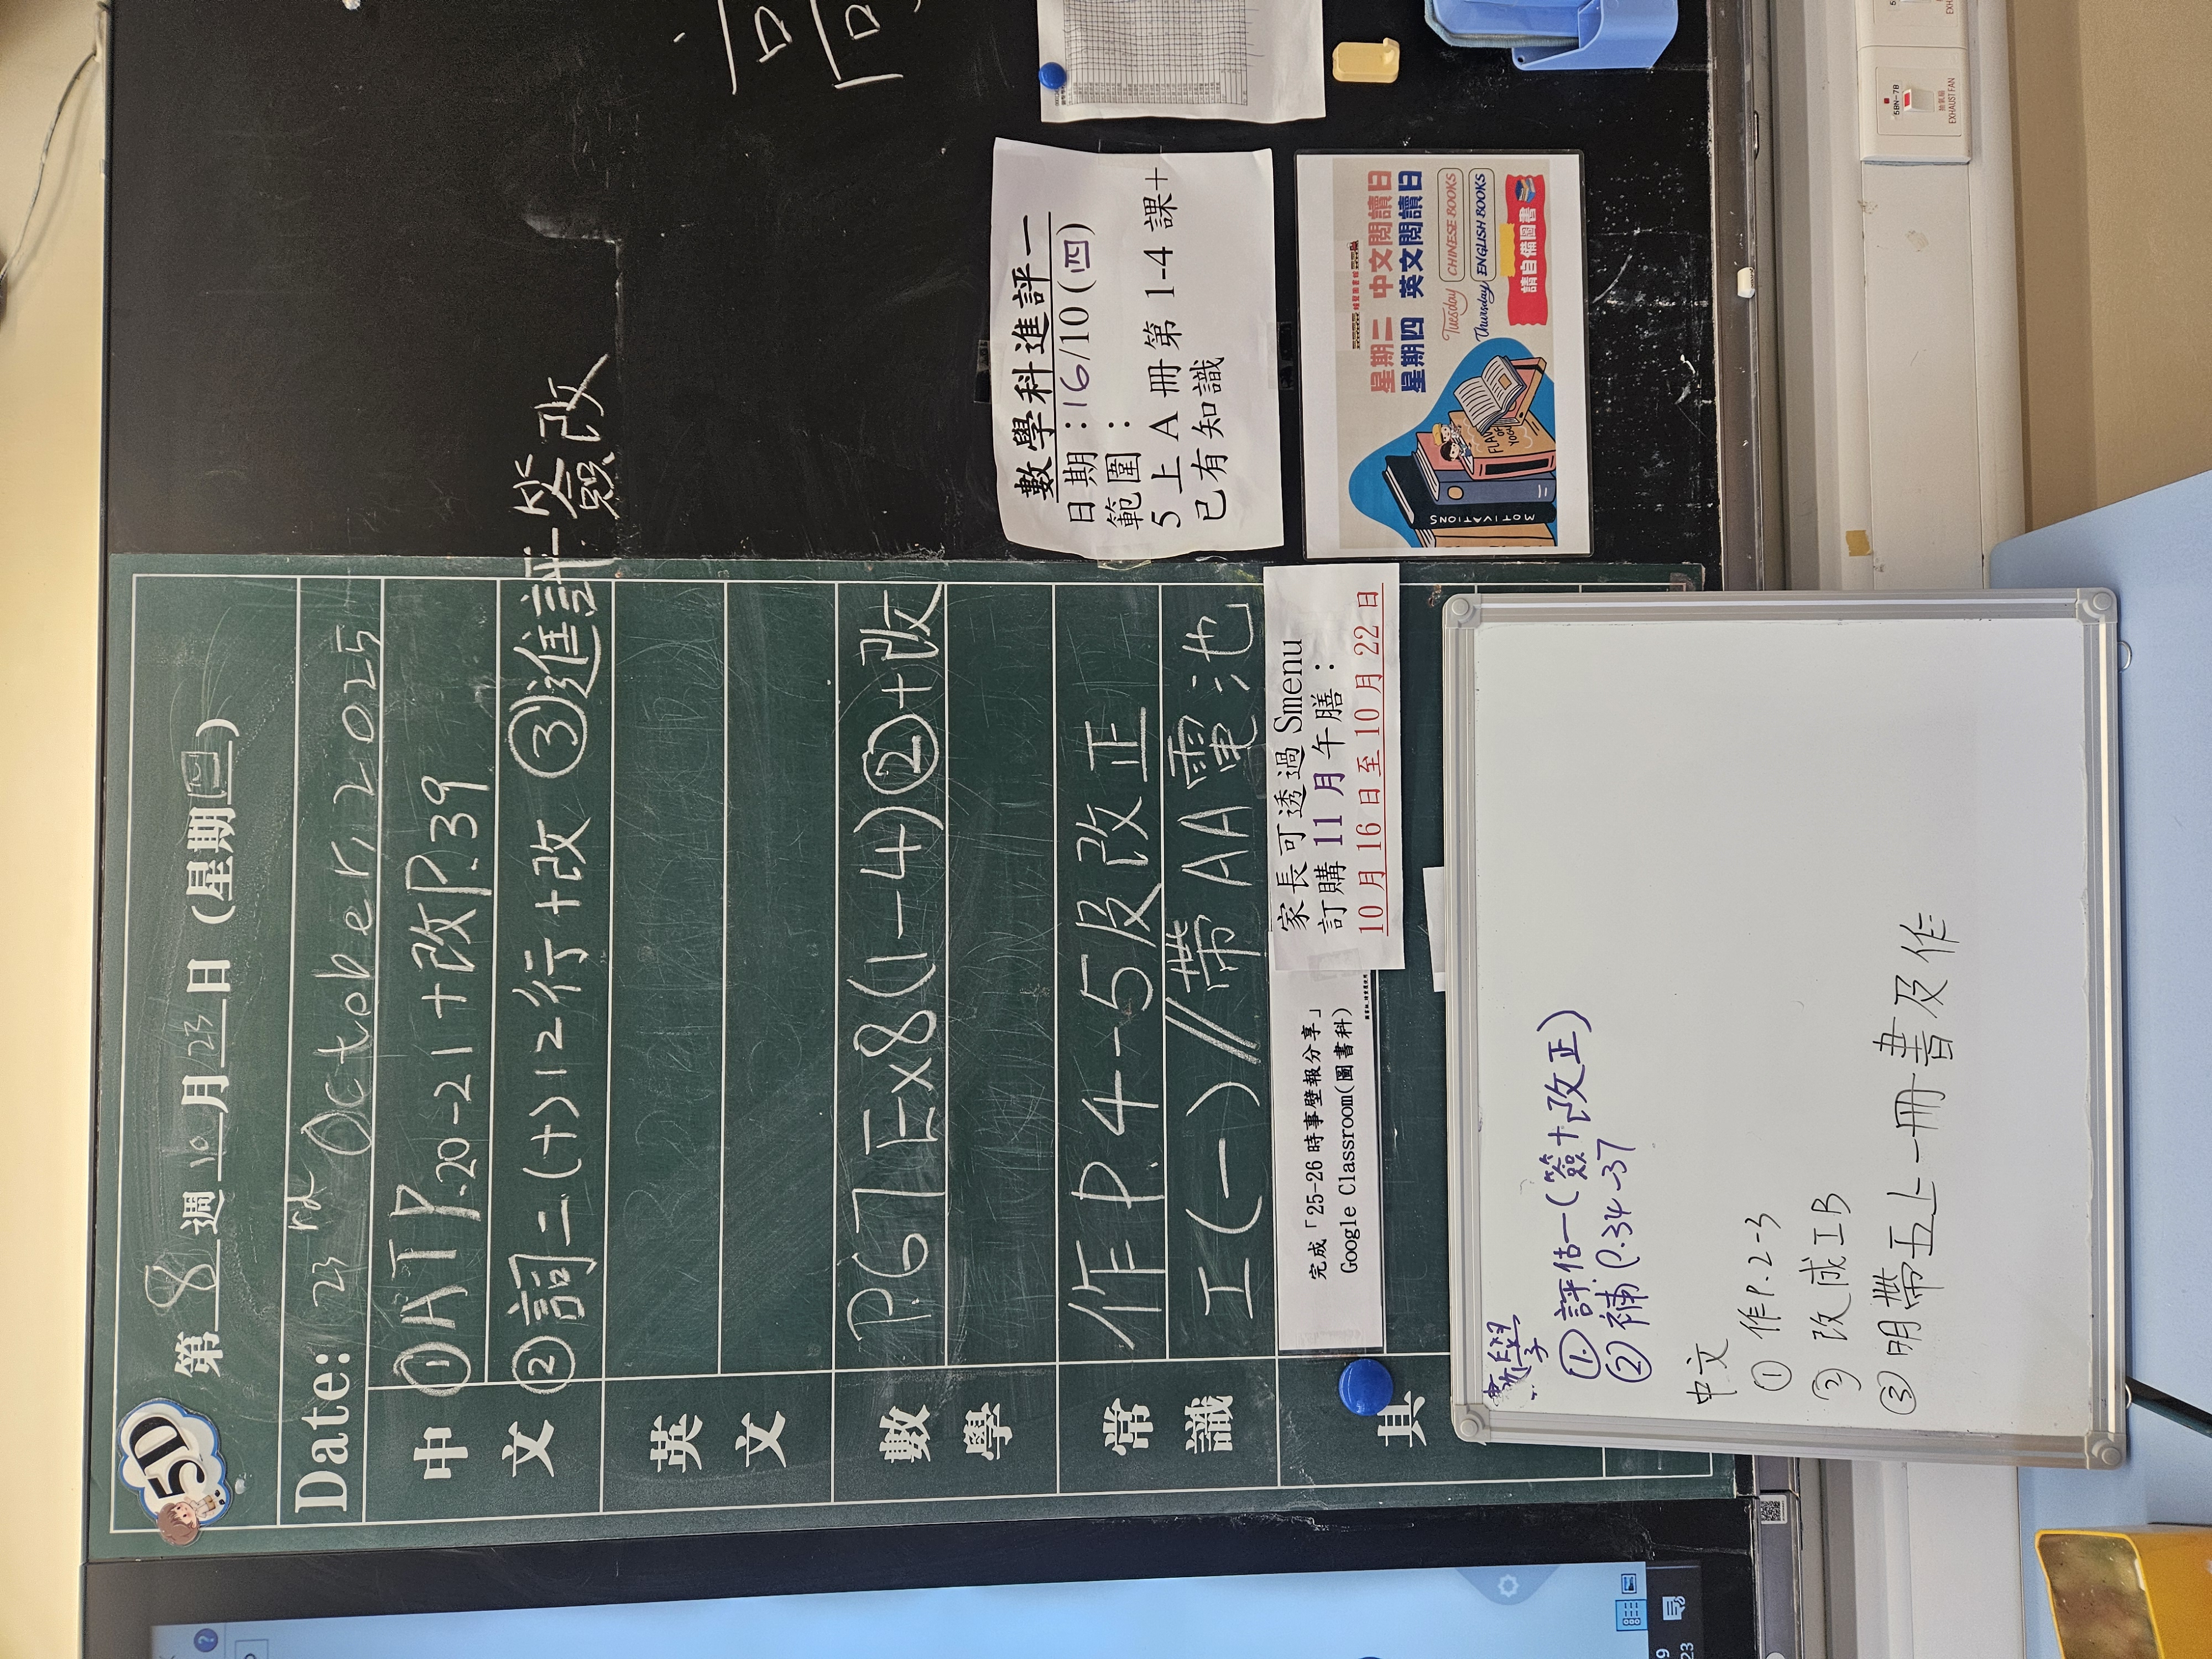 5D
第 8 週 10 月 23 日 (星期四)
Date: 23rd October, 2025
中文
① ATP P.20-21+改P.39
② 詞二(十)12行+改 ③進評一簽改
英文
數學
P.67 Ex8(1-4)②+改
常識
作 P.4-5及改正
工(一)//帶AA電池
其
完成「25-26時事壁報分享」
Google Classroom(圖書科)
家長可透過 Smenu
訂購 11 月午膳：
10 月 16 日至 10 月 22 日
數學科進評一
日期：16/10(四)
範圍：
5 上 A 冊第 1-4 課+
已有知識
星期二 中文閱讀日
星期四 英文閱讀日
Tuesday CHINESE BOOKS
Thursday ENGLISH BOOKS
請自備圖書
MOTIVATIONS
數學
① 評估一(簽+改正)
② 補 P.34-37
中文
① 作P.2-3
② 改成工B
③ 明帶五上一冊書及作
5BN-7B
抽氣扇
EXHAUST FAN